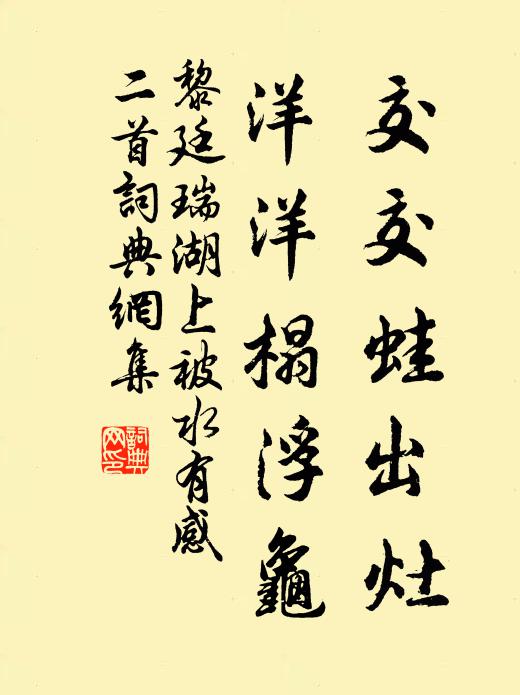 交交蛙出灶
洋洋榻浮龜
黎廷瑞湖上被水有感
二首詞典網集
詞典
网印